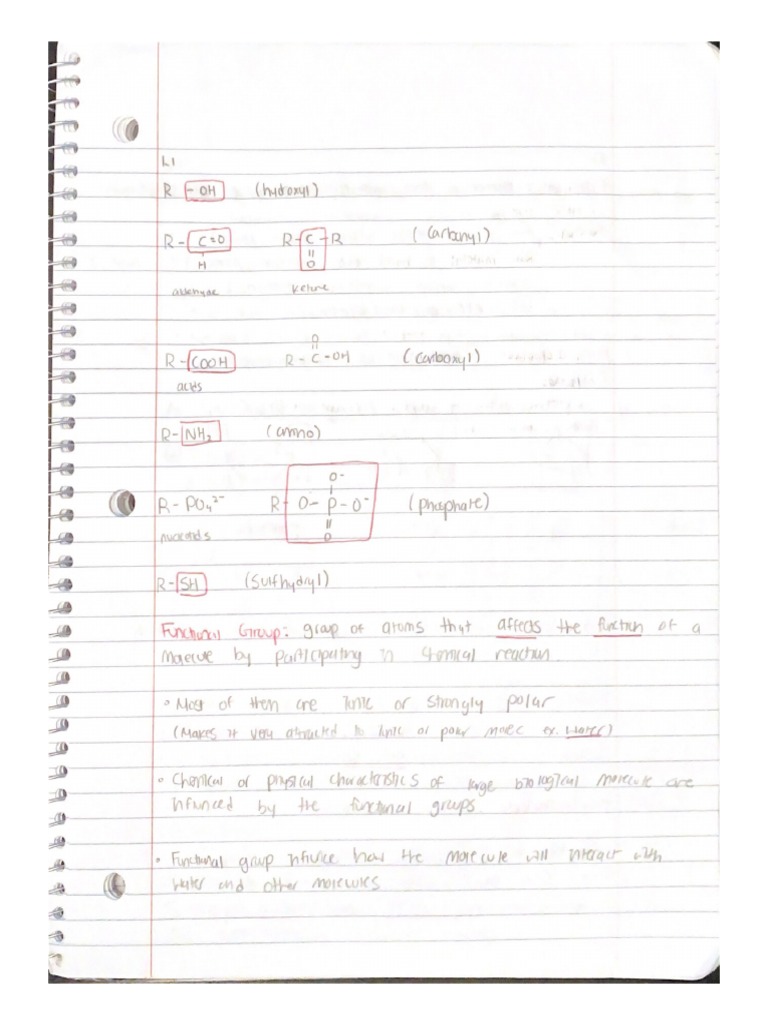 L1
R -OH (hydoxyl)
R - C=O R - C - R (Carbonyl)
H O
aldehyde ketone
O
R - COOH R - C - OH (Carboxyl)
acids
R - NH₂ (amino)
O⁻
R - PO₄²⁻ R O - P - O⁻ (phosphate)
O
R - SH (Sulfhydryl)
Functional Group: group of atoms that affects the function of a
molecule by participating in chemical reaction
• Most of them are ionic or strongly polar
(Makes it very attracted to ionic or polar molec ex. Water)
• Chemical or physical characteristics of large biological molecule are
infunced by the functional groups
• Functional group influce how the molecule will interact with
water and other molecules